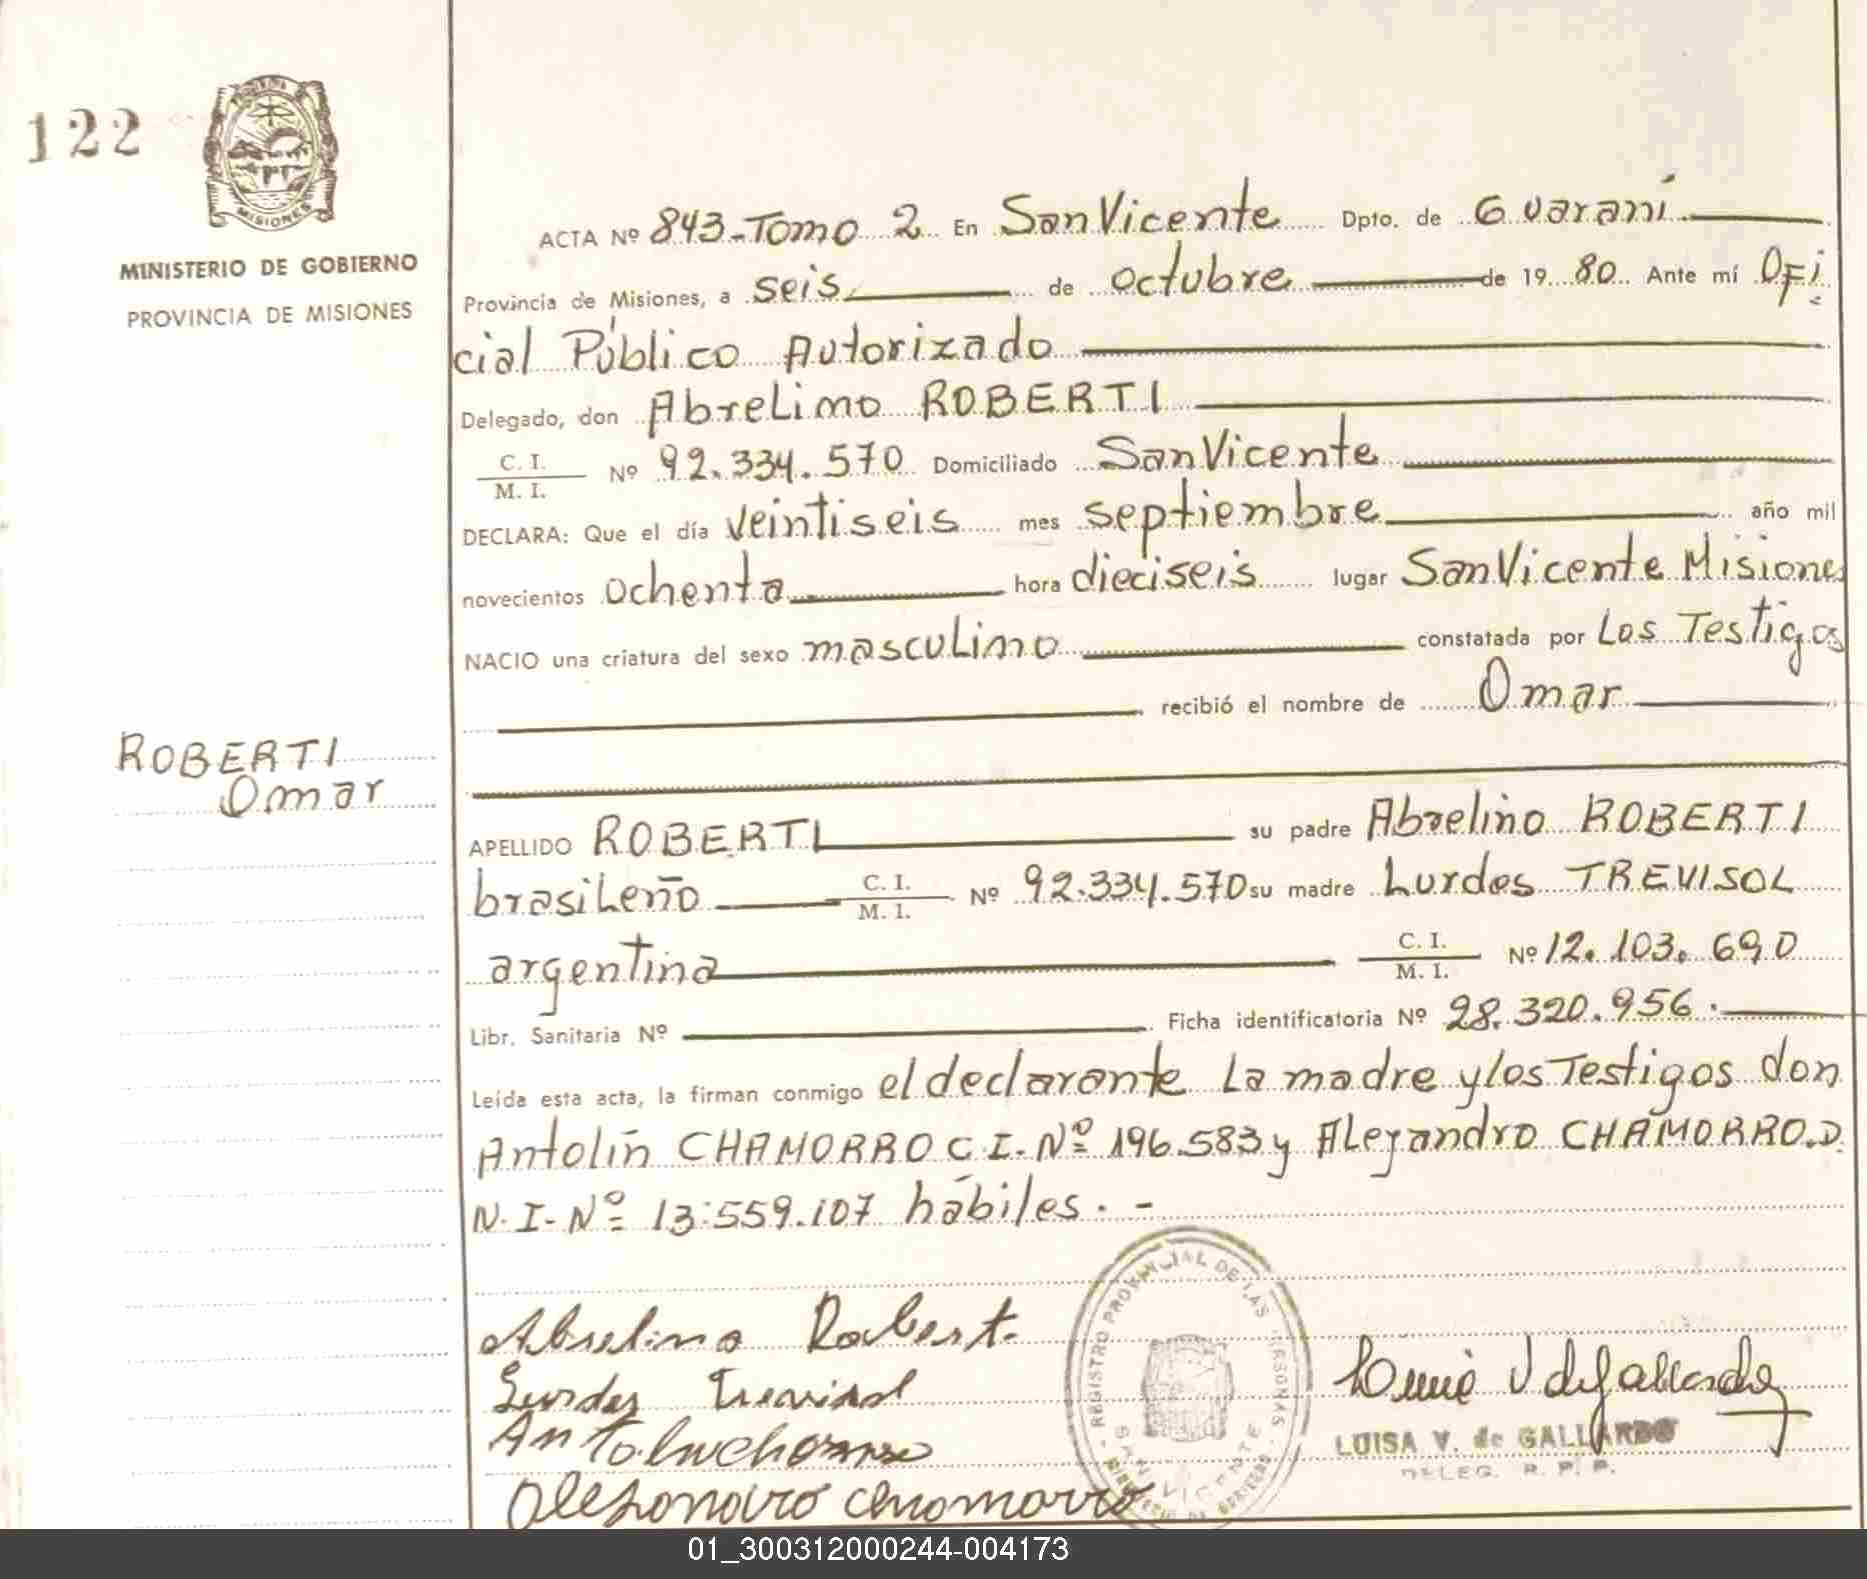 122
MISIONES
MINISTERIO DE GOBIERNO
PROVINCIA DE MISIONES
ACTA Nº 843-Tomo 2 En San Vicente Dpto. de Guaraní
Provincia de Misiones, a seis de octubre de 1980 Ante mí Ofi
cial Público Autorizado
Delegado, don Abrelino ROBERTI
C. I.
M. I. Nº 92.334.570 Domiciliado San Vicente
DECLARA: Que el día veintiseis mes septiembre año mil
novecientos ochenta hora dieciseis lugar San Vicente Misiones
NACIO una criatura del sexo masculino constatada por Los Testigos
recibió el nombre de Omar
ROBERTI
Omar
APELLIDO ROBERTI su padre Abrelino ROBERTI
brasileño C. I.
M. I. Nº 92.334.570 su madre Lurdes TREVISOL
argentina C. I.
M. I. Nº 12.103.690
Libr. Sanitaria Nº Ficha identificatoria Nº 28.320.956.
Leída esta acta, la firman conmigo el declarante La madre y los Testigos don
Antolín CHAMORRO C.I. Nº 196.583 y Alejandro CHAMORRO. D.
N. I- Nº 13.559.107 hábiles. -
Abrelino Robert.
Lurdes Trevisol
Antolin chamorro
Alejandro chamorro
REGISTRO PROVINCIAL DE LAS PERSONAS
SAN VICENTE
MINISTERIO DE GOBIERNO
Luisa V de Gallardo
LUISA V. de GALLARDO
DELEG. R. P. P.
01_300312000244-004173